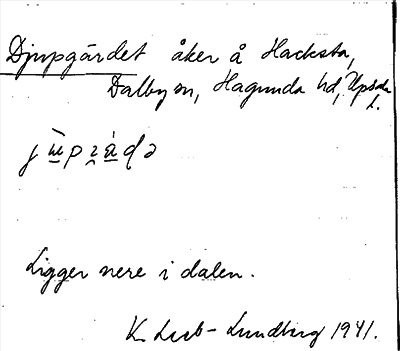 Djupgärdet åker å Hacksta,
Dalby sn, Hagunda hd, Upsala
l.
Ligger nere i dalen.
K. Leeb-Lundberg 1941.